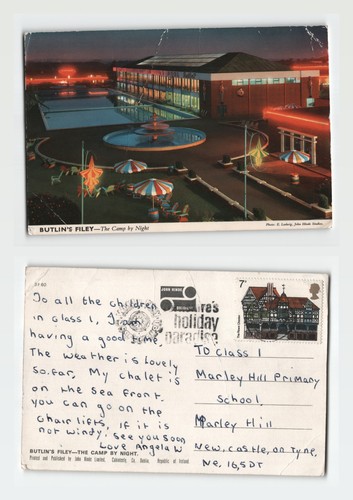 BUTLIN'S FILEY—The Camp by Night
Photo: E. Ludwig, John Hinde Studios.
To all the children
in class 1, I am
having a good time
The weather is lovely
so.far, My chalet is
on the sea front.
you can go on the
chair lifts, if it is
not windy, see you soon
Love Angela W
BUTLIN'S FILEY—THE CAMP BY NIGHT.
Printed and Published by John Hinde Limited, Cabinteely, Co. Dublin, Republic of Ireland.
JOHN HINDE
holiday
paradise
7p
To Class 1
Marley Hill Primary
School,
Marley Hill
New,castle,on Tyne,
Ne,16,5DT